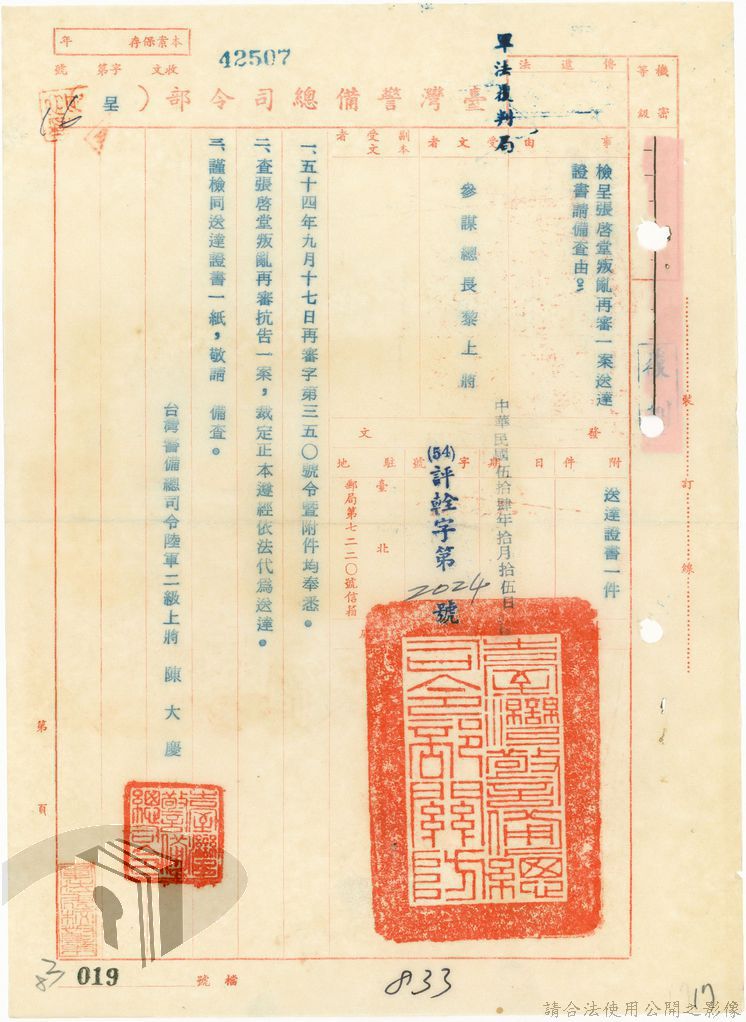 本案保存年
收文字第號
42507
軍法覆判局
傳遞法
機密等級
臺灣警備總司令部（呈）
事由
受文者
副本受文者
檢呈張啓堂叛亂再審一案送達
證書請備查由。
參謀總長黎上將
發文
附件
日期
字號
駐地
送達證書一件
中華民國伍拾肆年拾月拾伍日
(54)評銓字第2024號
臺北
郵局第七二二〇號信箱
一、五十四年九月十七日再審字第三五〇號令暨附件均奉悉。
二、查張啓堂叛亂再審抗告一案，裁定正本遵經依法代為送達。
三、謹檢同送達證書一紙，敬請　備查。
台灣警備總司令陸軍二級上將　陳大慶
臺灣警備總司令部關防
裝訂線
第頁
019
檔號
833
17
請合法使用公開之影像